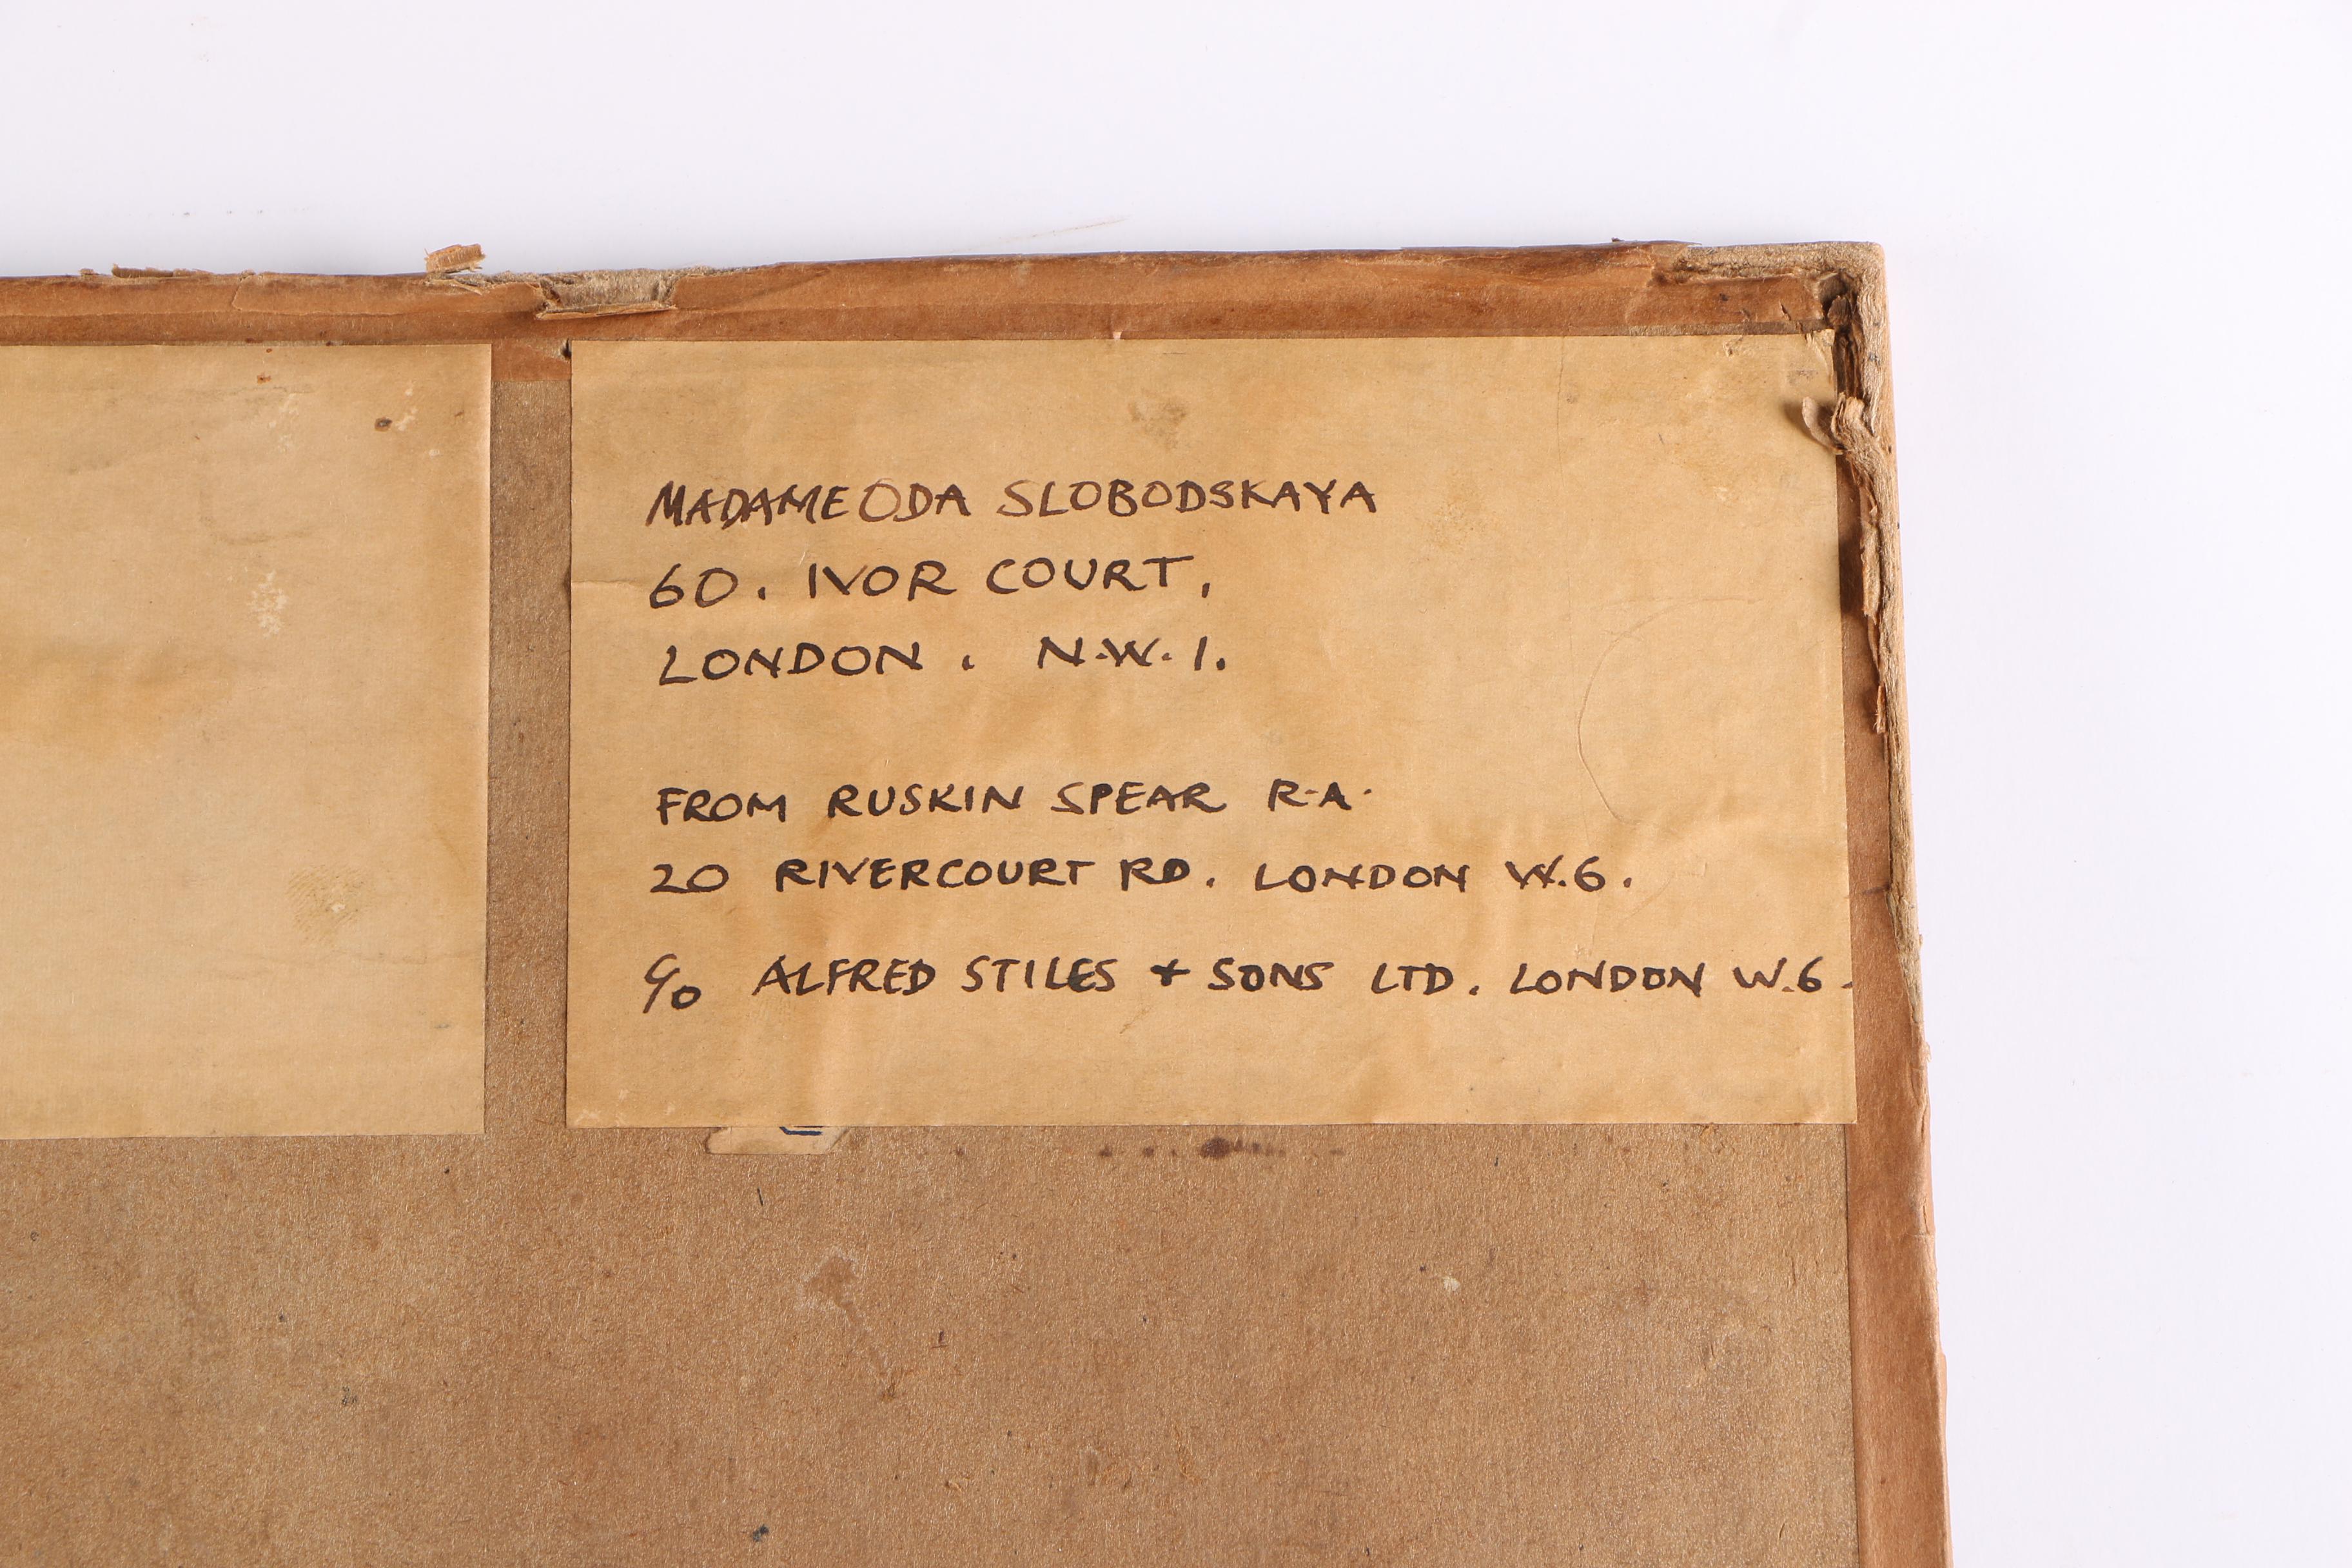 MADAME ODA SLOBODSKAYA
60. IVOR COURT,
LONDON. N.W.1.
FROM RUSKIN SPEAR R.A.
20 RIVERCOURT RD. LONDON W.6.
c/o ALFRED STILES + SONS LTD. LONDON W.6.